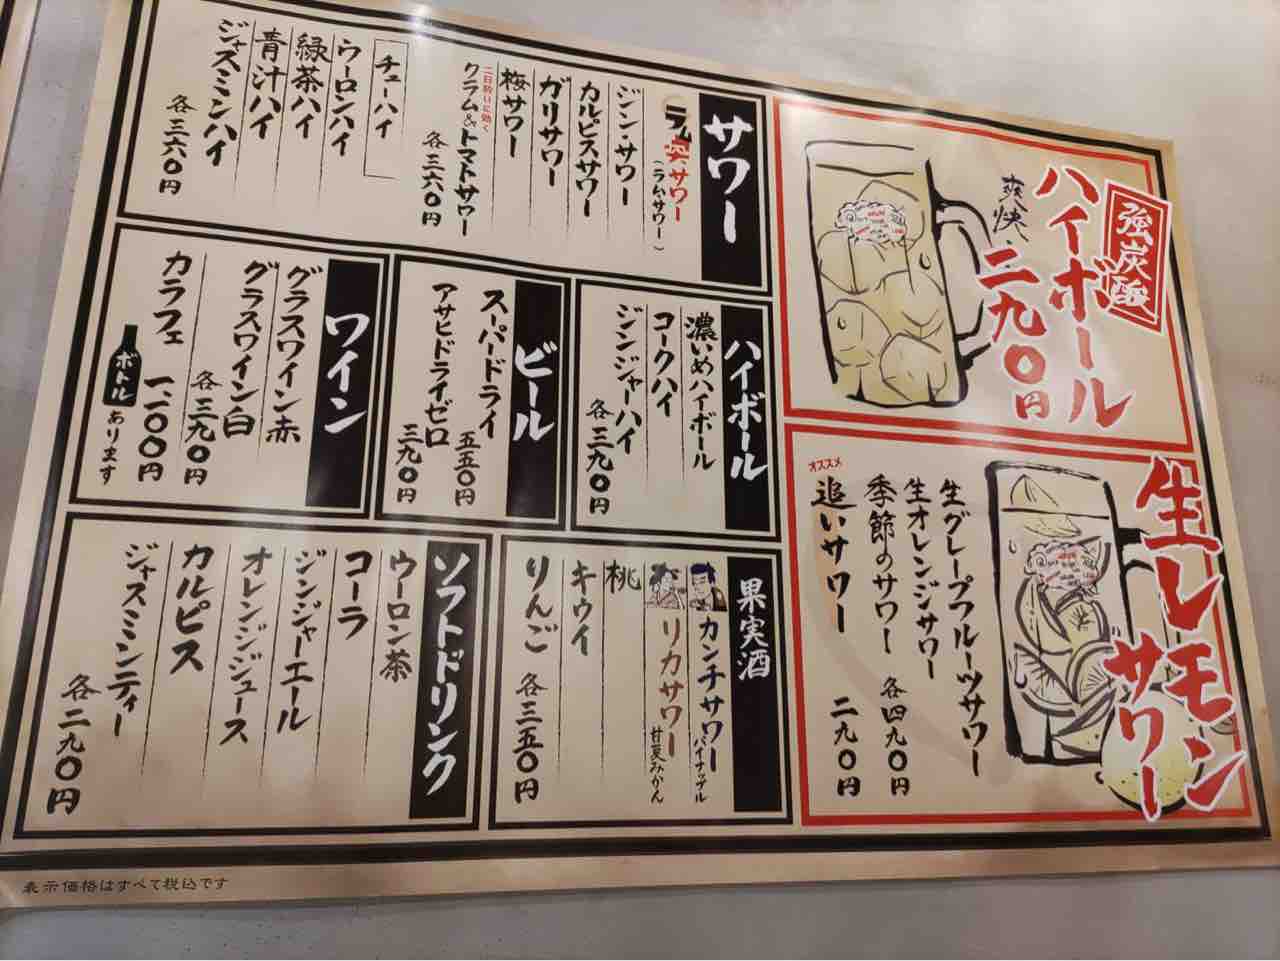 強炭酸
ハイボール
爽快、二九〇円
生レモンサワー
生グレープフルーツサワー
生オレンジサワー
季節のサワー 各四九〇円
オススメ
追いサワー 二九〇円
サワー
ラム突サワー
(ラム・サワー)
ジン・サワー
カルピスサワー
ガリサワー
梅サワー
二日酔いに効く
クラム&トマトサワー
各三六〇円
チューハイ
ウーロンハイ
緑茶ハイ
青汁ハイ
ジャスミンハイ
各三六〇円
ハイボール
濃いめハイボール
コークハイ
ジンジャーハイ
各三九〇円
ビール
スーパードライ
五五〇円
アサヒドライゼロ
三九〇円
ワイン
グラスワイン赤
グラスワイン白
各三九〇円
カラフェ 一一〇〇円
ボトル あります
果実酒
カンチサワー パイナップル
リカサワー 甘夏みかん
桃
キウイ
りんご 各三五〇円
ソフトドリンク
ウーロン茶
コーラ
ジンジャーエール
オレンジジュース
カルピス
ジャスミンティー
各二九〇円
表示価格はすべて税込です